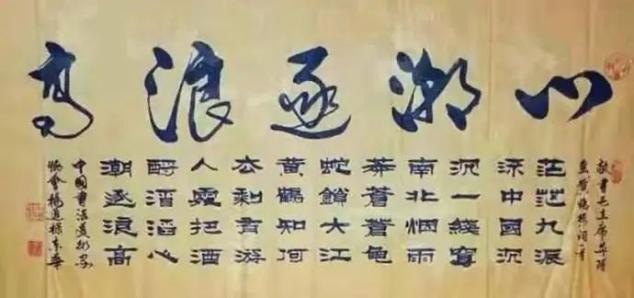 心潮逐浪高
敬書毛主席菩薩
蠻黃鶴樓詞一首
茫茫九派
流中國沉
沉一綫穿
南北烟雨
莽蒼蒼龜
蛇鎖大江
黃鶴知何
去剩有游
人處把酒
酹滔滔心
潮逐浪高
中國書法
協會楊進標